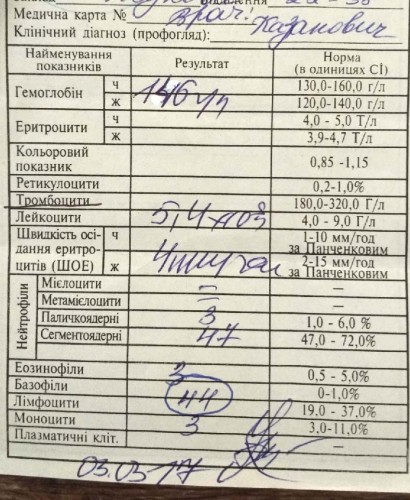 Медична карта № Врач:
Клінічний діагноз (профогляд): Казанович
Найменування показників Результат Норма (в одиницях СІ)
Гемоглобін ч 146 г/л 130,0-160,0 г/л
ж 120,0-140,0 г/л
Еритроцити ч 4,0 - 5,0 Т/л
ж 3,9-4,7 Т/л
Кольоровий показник 0,85 -1,15
Ретикулоцити 0,2-1,0%
Тромбоцити 180,0-320,0 Г/л
Лейкоцити 5,4 х10⁹ 4,0 - 9,0 Г/л
Швидкість осі- ч 1-10 мм/год
дання еритро- за Панченковим
цитів (ШОЕ) ж 4 мм/год 2-15 мм/год
за Панченковим
Нейтрофіли
Мієлоцити – –
Метамієлоцити – –
Паличкоядерні 3 1,0 - 6,0 %
Сегментоядерні 47 47,0 - 72,0%
Еозинофіли 3 0,5 - 5,0%
Базофіли 0-1,0%
Лімфоцити 44 19.0 - 37,0%
Моноцити 3 3,0-11,0%
Плазматичні кліт. –
03.03-17